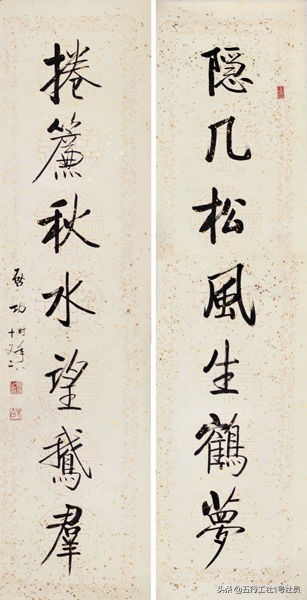 隐几松風生鶴夢
捲簾秋水望鵝羣
啟功
頭条@五行工社1号社员